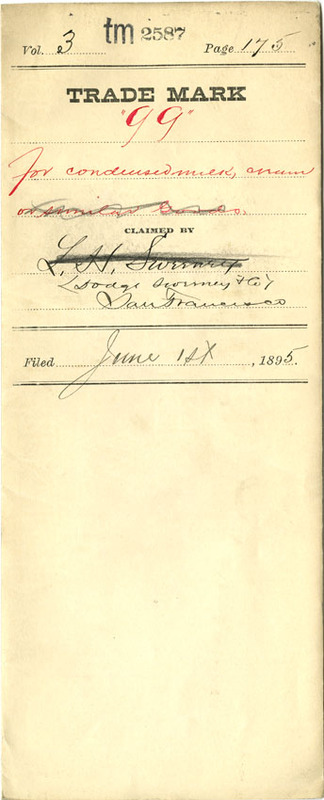 tm 2587
Vol. 3 Page 175
TRADE MARK
"99"
for condensed milk, cream
or similar Goods.
CLAIMED BY
L. H. Sweeney
Dodge Sweeney & Co
San Francisco
Filed June 1st, 1895.